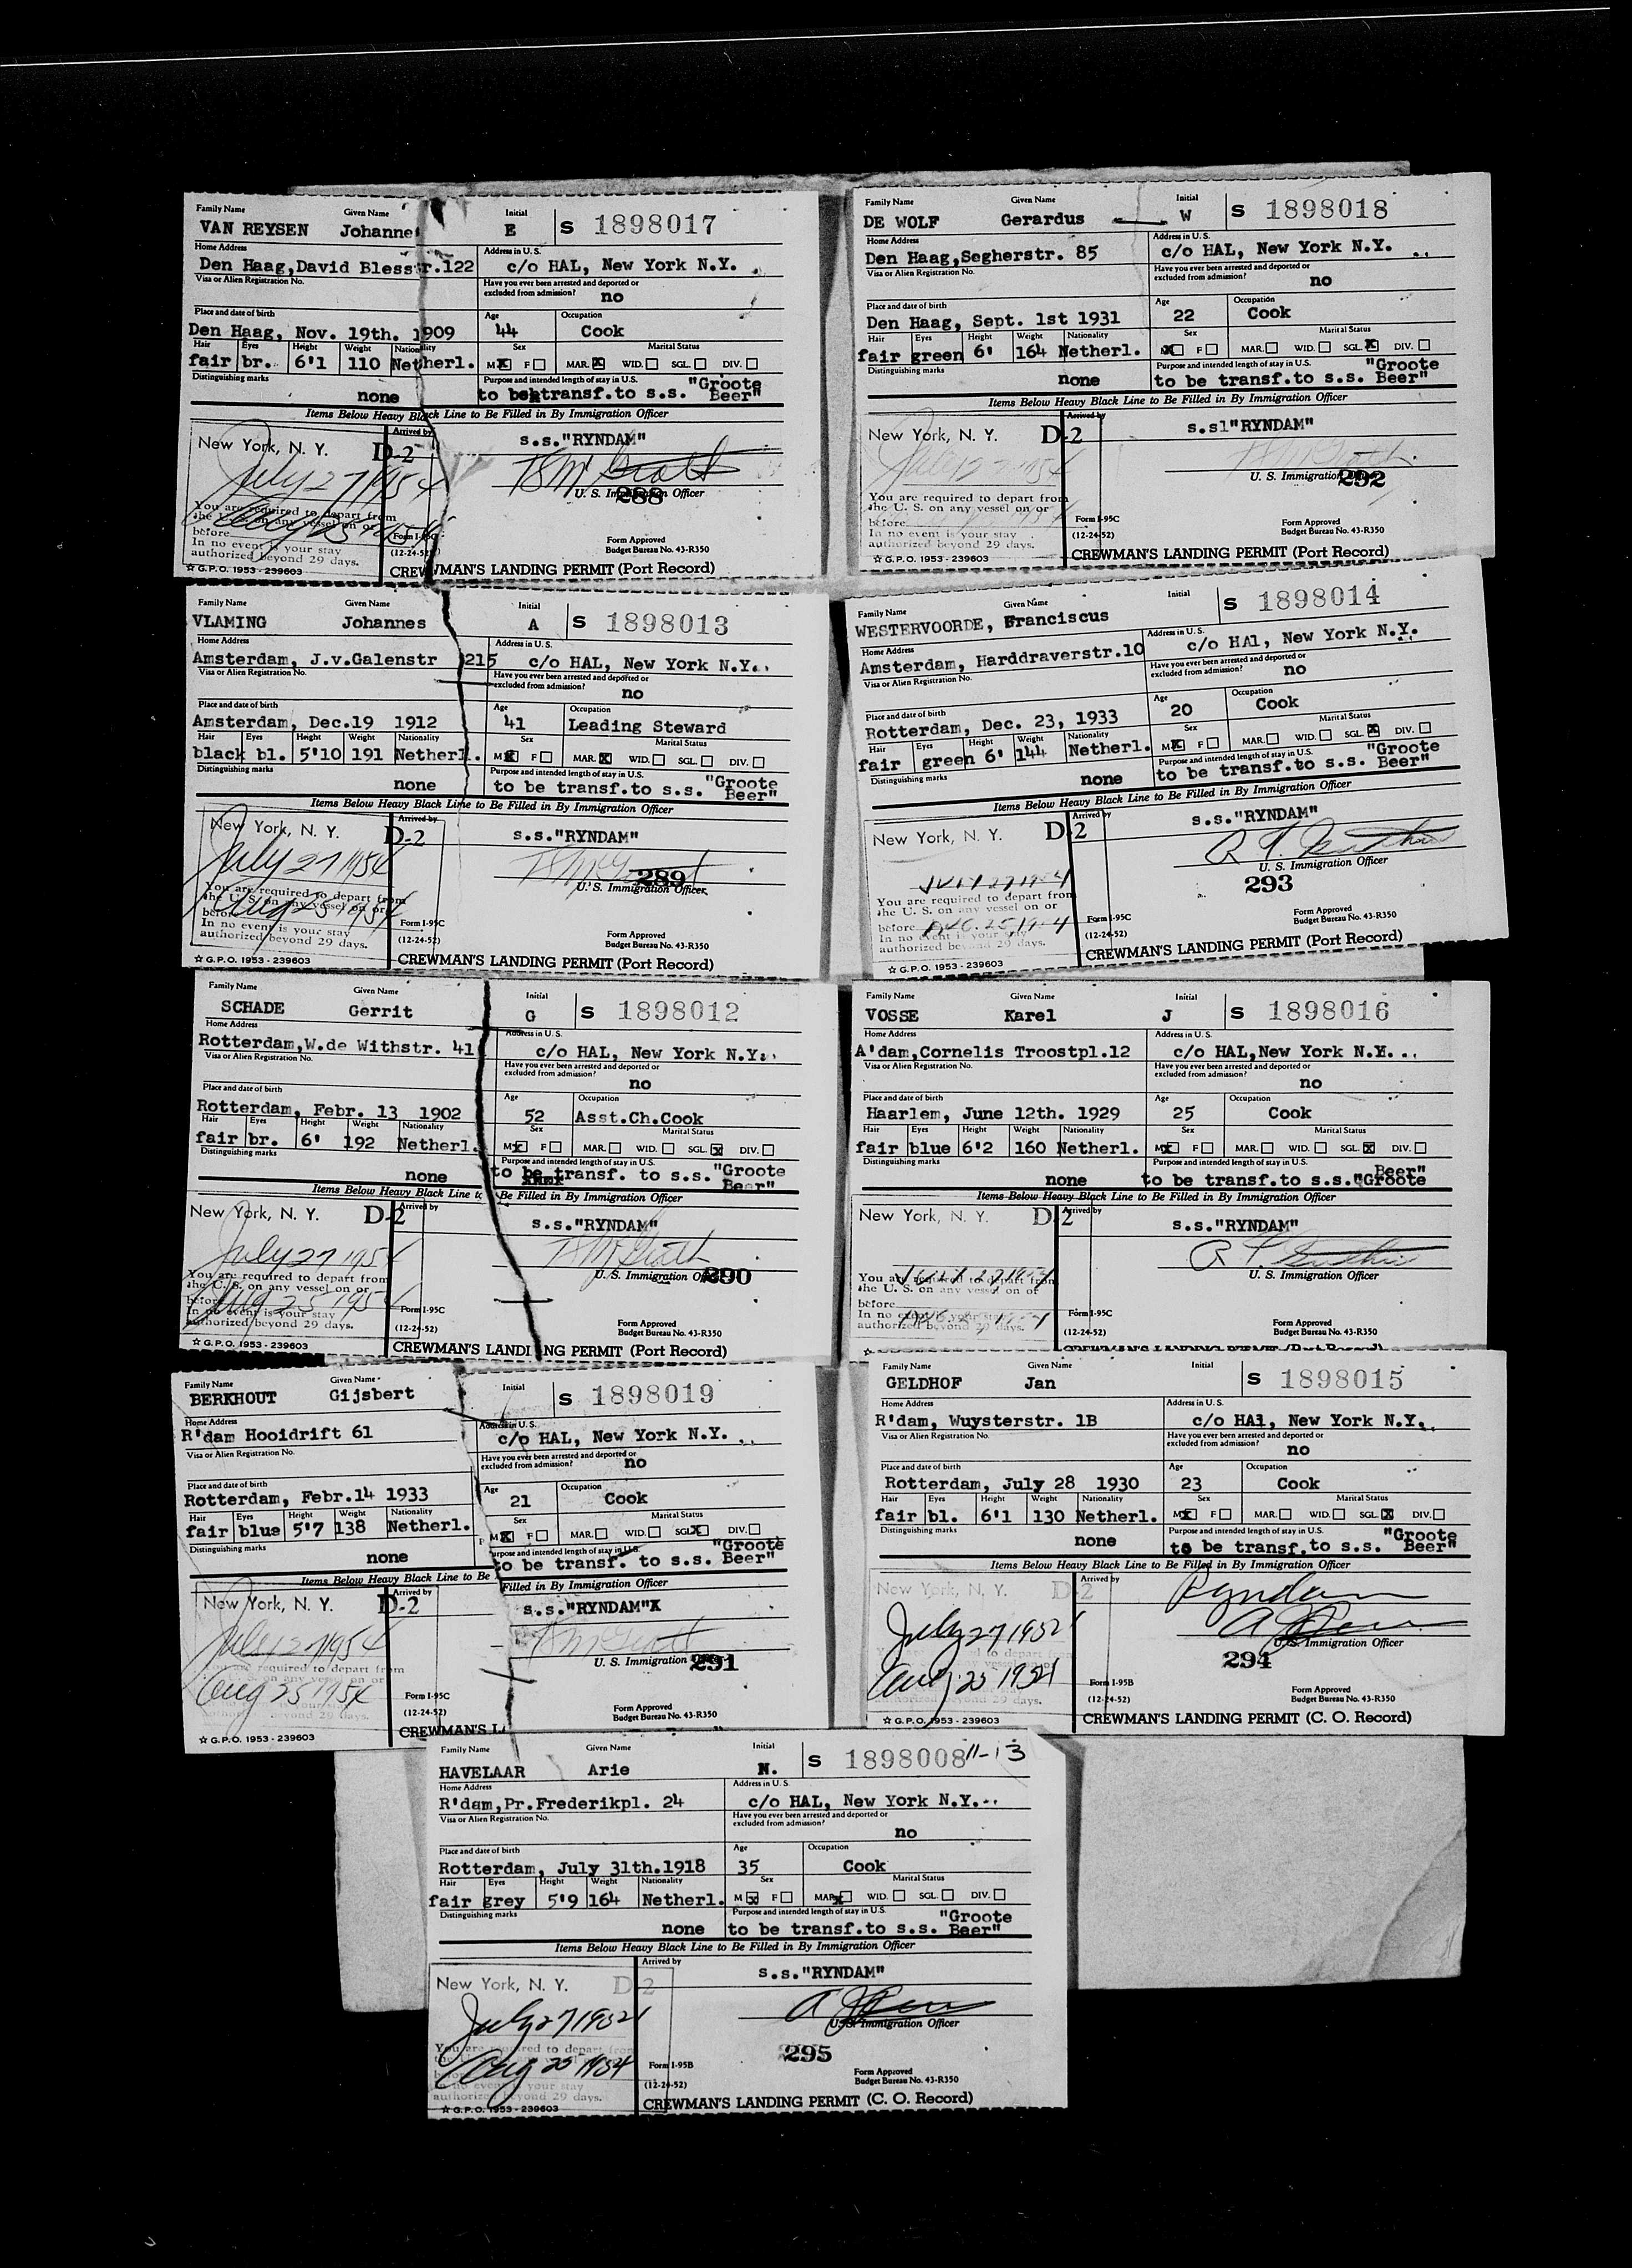 Family Name Given Name Initial S 1898017
VAN REYSEN Johanne E
Home Address Address in U. S.
Den Haag,David Blesstr.122 c/o HAL, New York N.Y.
Visa or Alien Registration No. Have you ever been arrested and deported or excluded from admission? no
Place and date of birth Age Occupation
Den Haag, Nov. 19th. 1909 44 Cook
Hair Eyes Height Weight Nationality Sex Marital Status
fair br. 6'1 110 Netherl. M X F MAR. X WID. SGL. DIV.
Distinguishing marks Purpose and intended length of stay in U.S. "Groote
none to be transf.to s.s. Beer"
Items Below Heavy Black Line to Be Filled in By Immigration Officer
New York, N. Y. D-2 Arrived by
s.s."RYNDAM"
July 27 1954
U. S. Immigration Officer
288
You are required to depart from
the U. S. on any vessel on or
before Aug 25 1954
In no event is your stay
authorized beyond 29 days.
Form I-95C
(12-24-52)
Form Approved
Budget Bureau No. 43-R350
☆ G.P.O. 1953 - 239603
CREWMAN'S LANDING PERMIT (Port Record)
Family Name Given Name Initial S 1898018
DE WOLF Gerardus W
Home Address Address in U. S.
Den Haag,Segherstr. 85 c/o HAL, New York N.Y.
Visa or Alien Registration No. Have you ever been arrested and deported or excluded from admission? no
Place and date of birth Age Occupation
Den Haag, Sept. 1st 1931 22 Cook
Hair Eyes Height Weight Nationality Sex Marital Status
fair green 6' 164 Netherl. M X F MAR. WID. SGL. X DIV.
Distinguishing marks Purpose and intended length of stay in U.S. "Groote
none to be transf.to s.s. Beer"
Items Below Heavy Black Line to Be Filled in By Immigration Officer
New York, N. Y. D-2 Arrived by
s.sl"RYNDAM"
July 27 1954
U. S. Immigration
292
You are required to depart from
the U. S. on any vessel on or
before
In no event is your stay
authorized beyond 29 days.
Form I-95C
(12-24-52)
Form Approved
Budget Bureau No. 43-R350
☆ G.P.O. 1953 - 239603
CREWMAN'S LANDING PERMIT (Port Record)
Family Name Given Name Initial S 1898013
VLAMING Johannes A
Home Address Address in U. S.
Amsterdam, J.v.Galenstr 215 c/o HAL, New York N.Y.
Visa or Alien Registration No. Have you ever been arrested and deported or excluded from admission? no
Place and date of birth Age Occupation
Amsterdam, Dec.19 1912 41 Leading Steward
Hair Eyes Height Weight Nationality Sex Marital Status
black bl. 5'10 191 Netherl. M X F MAR. X WID. SGL. DIV.
Distinguishing marks Purpose and intended length of stay in U.S. "Groote
none to be transf.to s.s. Beer"
Items Below Heavy Black Line to Be Filled in By Immigration Officer
New York, N. Y. D-2 Arrived by
s.s."RYNDAM"
July 27 1954
289
U. S. Immigration Officer
You are required to depart from
the U. S. on any vessel on or
before Aug 25 1954
In no event is your stay
authorized beyond 29 days.
Form I-95C
(12-24-52)
Form Approved
Budget Bureau No. 43-R350
☆ G.P.O. 1953 - 239603
CREWMAN'S LANDING PERMIT (Port Record)
Family Name Given Name Initial S 1898014
WESTERVOORDE, Franciscus
Home Address Address in U. S.
Amsterdam, Harddraverstr.10 c/o HAl, New York N.Y.
Visa or Alien Registration No. Have you ever been arrested and deported or excluded from admission? no
Place and date of birth Age Occupation
Rotterdam, Dec. 23, 1933 20 Cook
Hair Eyes Height Weight Nationality Sex Marital Status
fair green 6' 144 Netherl. M X F MAR. WID. SGL. X DIV.
Distinguishing marks Purpose and intended length of stay in U.S. "Groote
none to be transf.to s.s. Beer"
Items Below Heavy Black Line to Be Filled in By Immigration Officer
New York, N. Y. D-2 Arrived by
s.s."RYNDAM"
U. S. Immigration Officer
JULY 27 1954
293
You are required to depart from
the U. S. on any vessel on or
before AUG. 25, 1954
In no event is your stay
authorized beyond 29 days.
Form I-95C
(12-24-52)
Form Approved
Budget Bureau No. 43-R350
☆ G.P.O. 1953 - 239603
CREWMAN'S LANDING PERMIT (Port Record)
Family Name Given Name Initial S 1898012
SCHADE Gerrit G
Home Address Address in U. S.
Rotterdam,W.de Withstr. 41 c/o HAL, New York N.Y.
Visa or Alien Registration No. Have you ever been arrested and deported or excluded from admission? no
Place and date of birth Age Occupation
Rotterdam, Febr. 13 1902 52 Asst.Ch.Cook
Hair Eyes Height Weight Nationality Sex Marital Status
fair br. 6' 192 Netherl. M X F MAR. WID. SGL. X DIV.
Distinguishing marks Purpose and intended length of stay in U.S. "Groote
none to be transf. to s.s. Beer"
Items Below Heavy Black Line to Be Filled in By Immigration Officer
New York, N. Y. D-2 Arrived by
s.s."RYNDAM"
July 27 1954
U. S. Immigration
290
You are required to depart from
the U. S. on any vessel on or
before Aug 25 1954
In no event is your stay
authorized beyond 29 days.
Form I-95C
(12-24-52)
Form Approved
Budget Bureau No. 43-R350
☆ G.P.O. 1953 - 239603
CREWMAN'S LANDING PERMIT (Port Record)
Family Name Given Name Initial S 1898016
VOSSE Karel J
Home Address Address in U. S.
A'dam,Cornelis Troostpl.12 c/o HAL,New York N.Y.
Visa or Alien Registration No. Have you ever been arrested and deported or excluded from admission? no
Place and date of birth Age Occupation
Haarlem, June 12th. 1929 25 Cook
Hair Eyes Height Weight Nationality Sex Marital Status
fair blue 6'2 160 Netherl. M X F MAR. WID. SGL. X DIV.
Distinguishing marks Purpose and intended length of stay in U.S. Beer"
none to be transf.to s.s."Groote
Items Below Heavy Black Line to Be Filled in By Immigration Officer
New York, N. Y. D-2 Arrived by
s.s."RYNDAM"
U. S. Immigration Officer
JULY 27 1954
You are required to depart from
the U. S. on any vessel on or
before
In no event is your stay
authorized beyond 29 days.
Form I-95C
(12-24-52)
Form Approved
Budget Bureau No. 43-R350
CREWMAN'S LANDING PERMIT (Port Record)
Family Name Given Name Initial S 1898019
BERKHOUT Gijsbert
Home Address Address in U. S.
R'dam Hooidrift 61 c/o HAL, New York N.Y.
Visa or Alien Registration No. Have you ever been arrested and deported or excluded from admission? no
Place and date of birth Age Occupation
Rotterdam, Febr.14 1933 21 Cook
Hair Eyes Height Weight Nationality Sex Marital Status
fair blue 5'7 138 Netherl. M X F MAR. WID. SGL. X DIV.
Distinguishing marks Purpose and intended length of stay in U.S. "Groote
none to be transf. to s.s. Beer"
Items Below Heavy Black Line to Be Filled in By Immigration Officer
New York, N. Y. D-2 Arrived by
s.s."RYNDAM"X
July 27 1954
U. S. Immigration
291
You are required to depart from
on any vessel on or
Aug 25 1954
is your stay
beyond 29 days.
Form I-95C
(12-24-52)
Form Approved
Budget Bureau No. 43-R350
☆ G.P.O. 1953 - 239603
CREWMAN'S L
Family Name Given Name Initial S 1898015
GELDHOF Jan
Home Address Address in U. S.
R'dam, Wuysterstr. 1B c/o HAl, New York N.Y.
Visa or Alien Registration No. Have you ever been arrested and deported or excluded from admission? no
Place and date of birth Age Occupation
Rotterdam, July 28 1930 23 Cook
Hair Eyes Height Weight Nationality Sex Marital Status
fair bl. 6'1 130 Netherl. M X F MAR. WID. SGL. X DIV.
Distinguishing marks Purpose and intended length of stay in U.S. "Groote
none to be transf.to s.s. Beer"
Items Below Heavy Black Line to Be Filled in By Immigration Officer
New York, N. Y. D-2 Arrived by
Ryndam
July 27 1954
U. S. Immigration Officer
294
Aug 25 1954
beyond 29 days.
Form I-95B
(12-24-52)
Form Approved
Budget Bureau No. 43-R350
☆ G.P.O. 1953 - 239603
CREWMAN'S LANDING PERMIT (C. O. Record)
Family Name Given Name Initial S 1898008 11-13
HAVELAAR Arie N.
Home Address Address in U. S.
R'dam,Pr.Frederikpl. 24 c/o HAL, New York N.Y.
Visa or Alien Registration No. Have you ever been arrested and deported or excluded from admission? no
Place and date of birth Age Occupation
Rotterdam, July 31th.1918 35 Cook
Hair Eyes Height Weight Nationality Sex Marital Status
fair grey 5'9 164 Netherl. M X F MAR. X WID. SGL. DIV.
Distinguishing marks Purpose and intended length of stay in U.S. "Groote
none to be transf.to s.s. Beer"
Items Below Heavy Black Line to Be Filled in By Immigration Officer
New York, N. Y. D-2 Arrived by
s.s."RYNDAM"
July 27 1954
U. S. Immigration Officer
295
You are required to depart from
Aug 25 1954
In no event is your stay
authorized beyond 29 days.
Form I-95B
(12-24-52)
Form Approved
Budget Bureau No. 43-R350
☆ G.P.O. 1953 - 239603
CREWMAN'S LANDING PERMIT (C. O. Record)